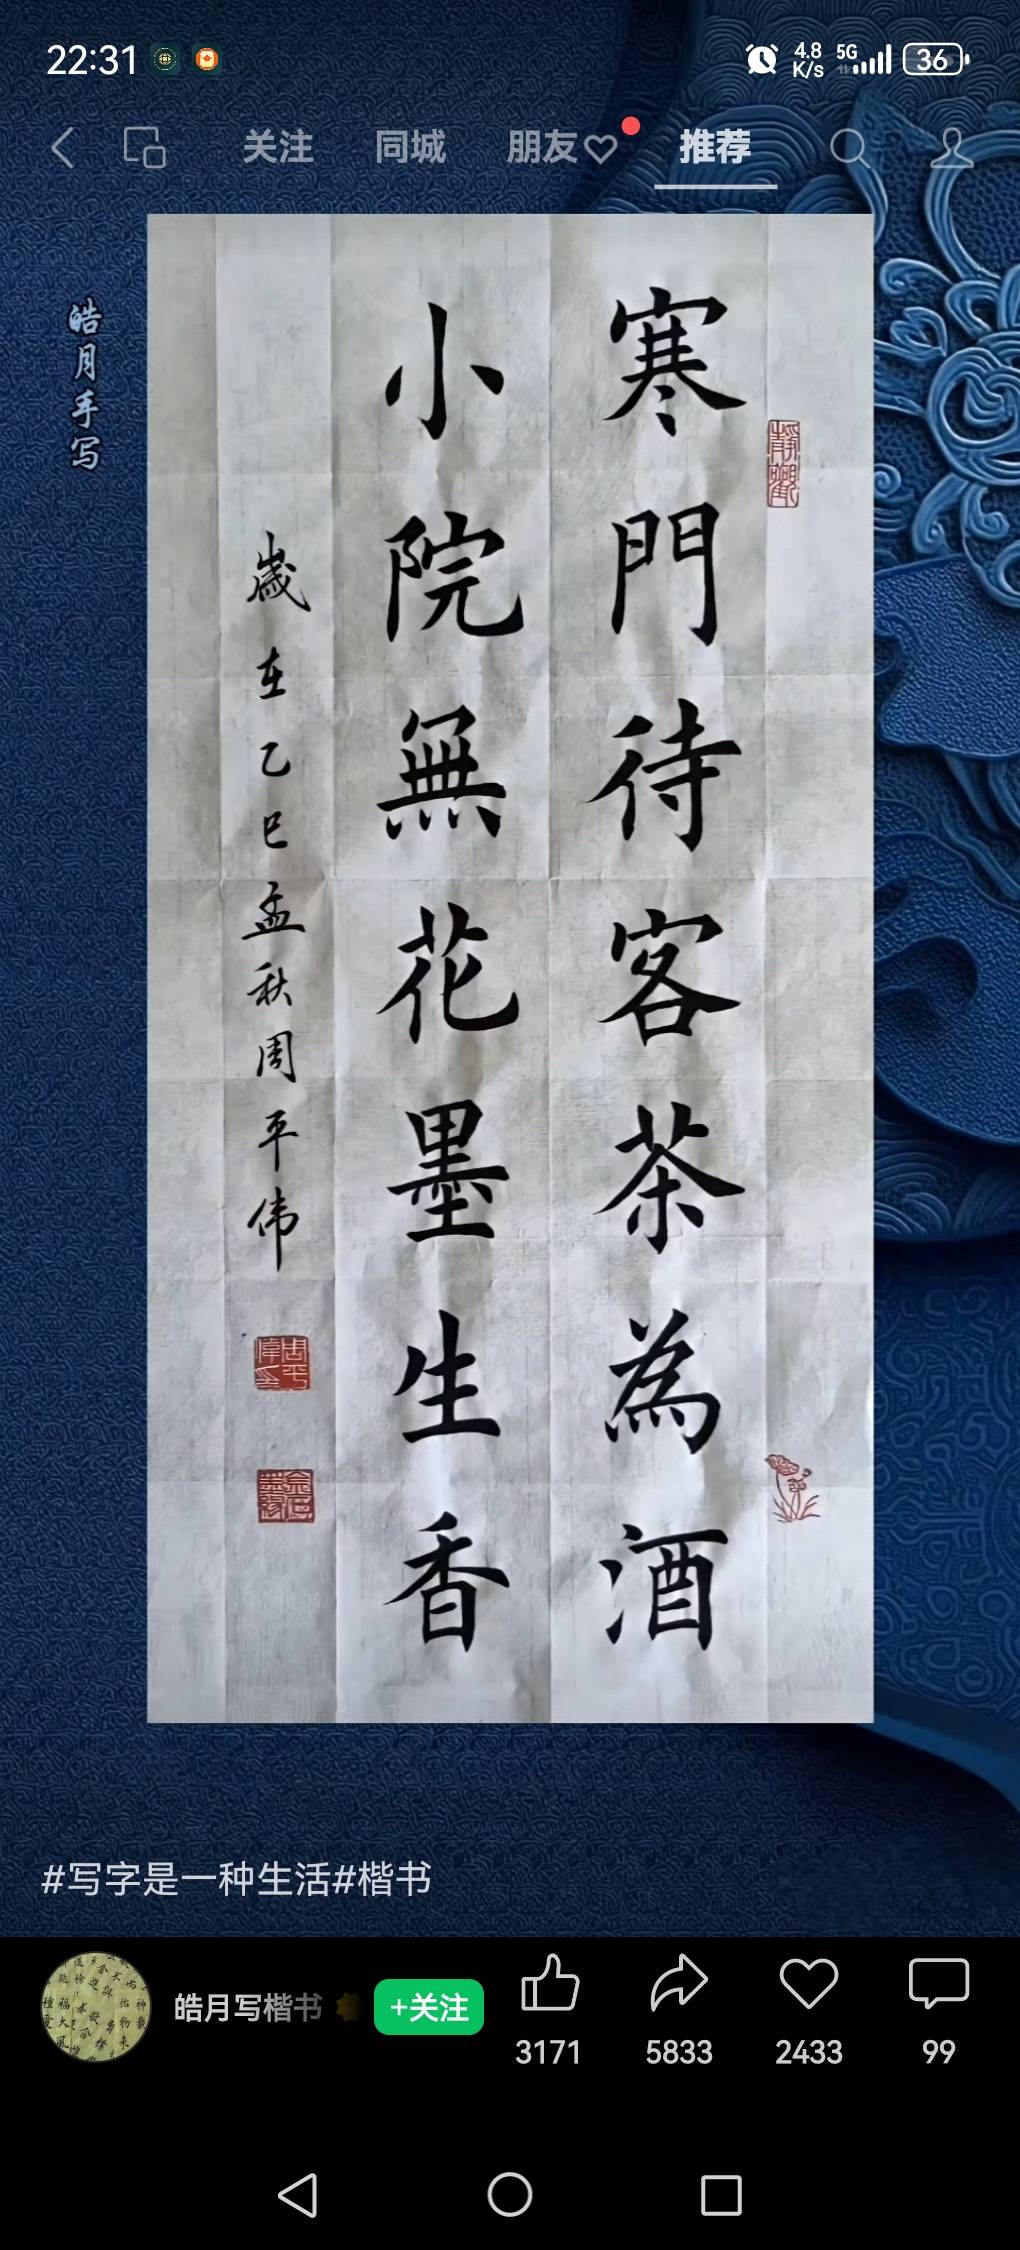 22:31
4.8 K/s
5G
36
关注 同城 朋友 推荐
皓月手写
寒門待客茶為酒
小院無花墨生香
歲在乙巳孟秋周平伟
靜觀
周平偉印
#写字是一种生活#楷书
皓月写楷书
+关注
3171 5833 2433 99